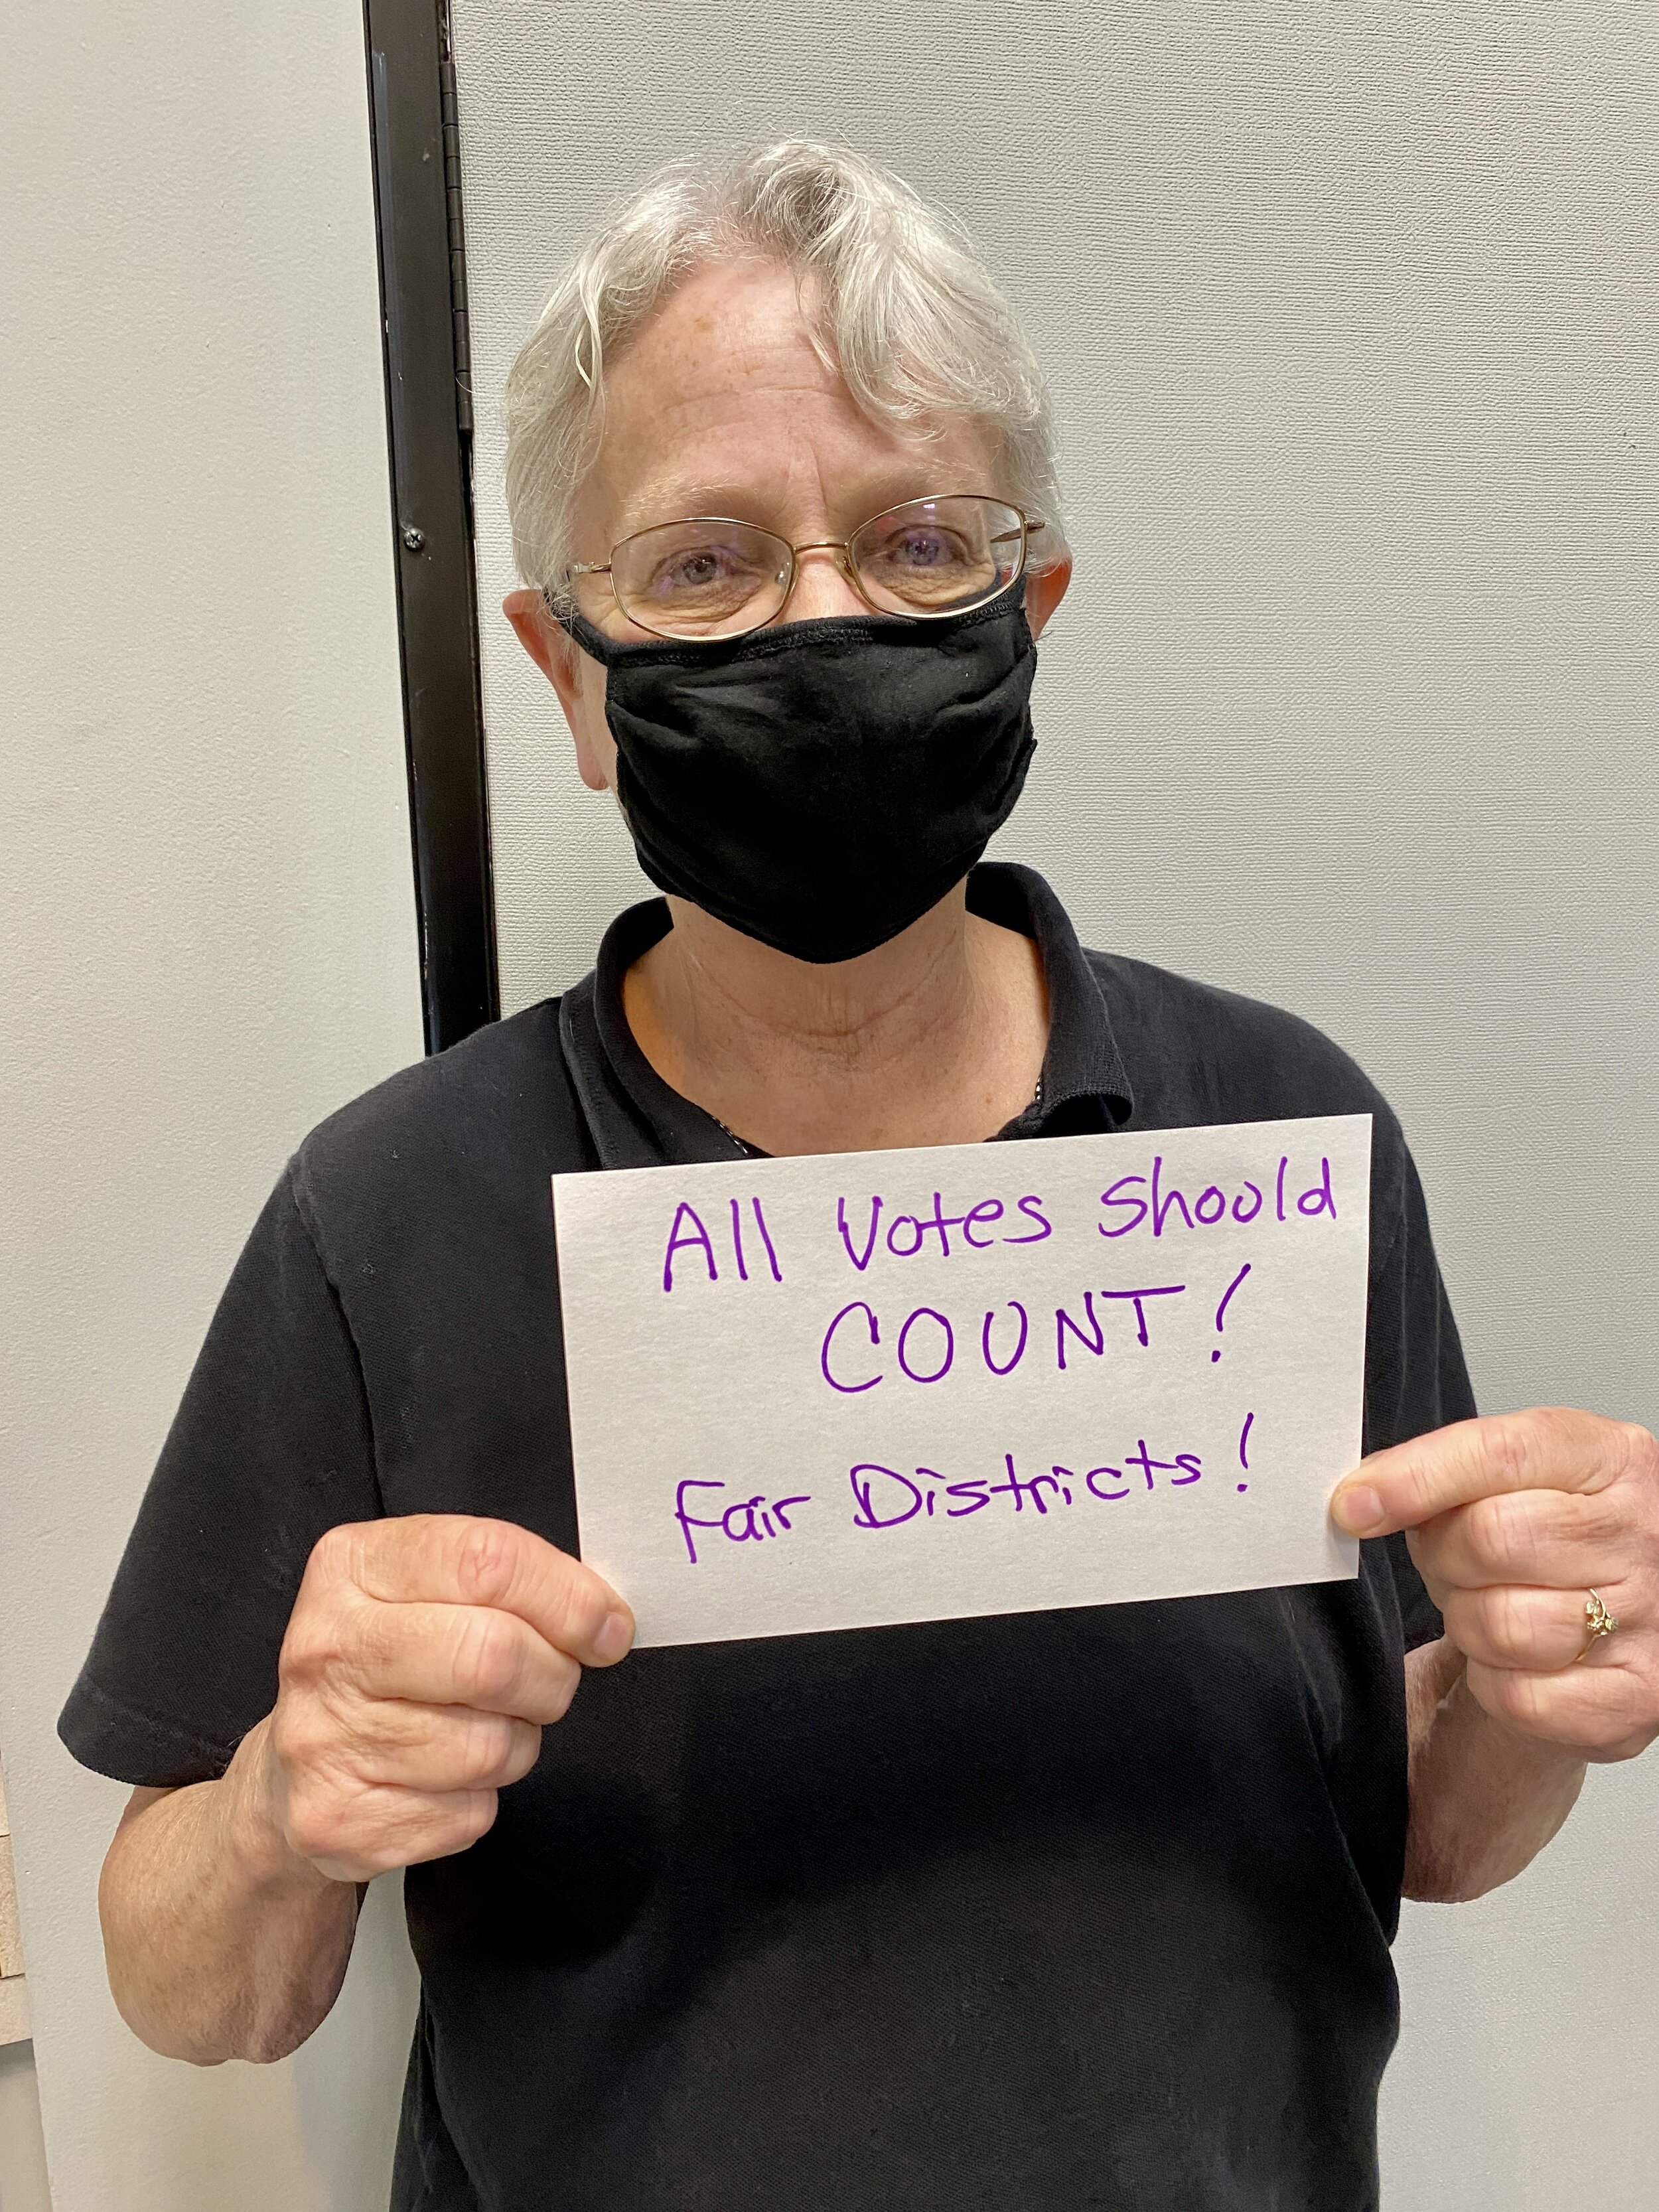 All Votes Should
COUNT!
Fair Districts!